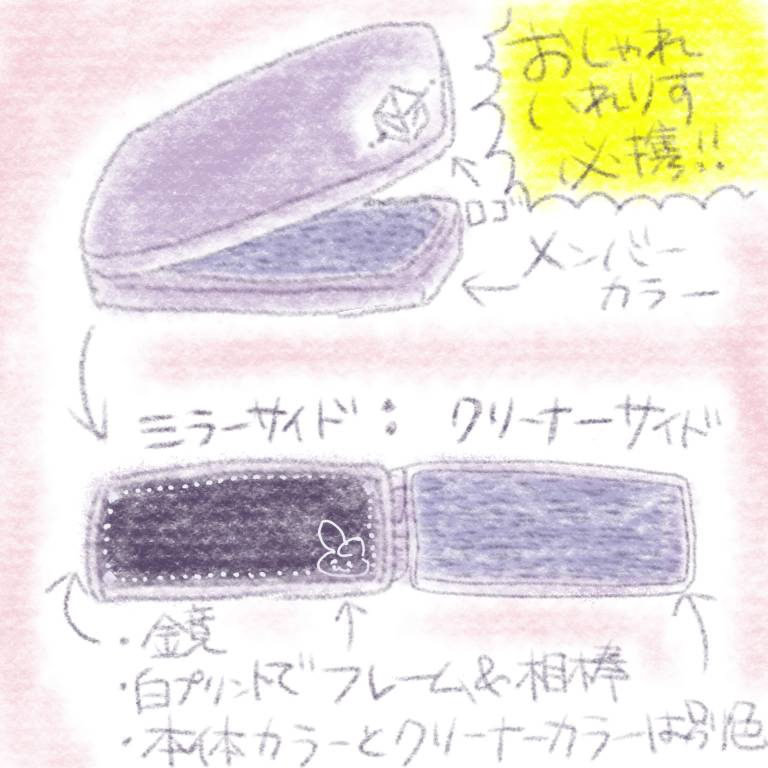 おしゃれ
いれりす
必携!!
ロゴ
メンバー
カラー
ミラーサイド：クリーナーサイド
・鏡
・白プリントでフレーム&相棒
・本体カラーとクリーナーカラーは別色